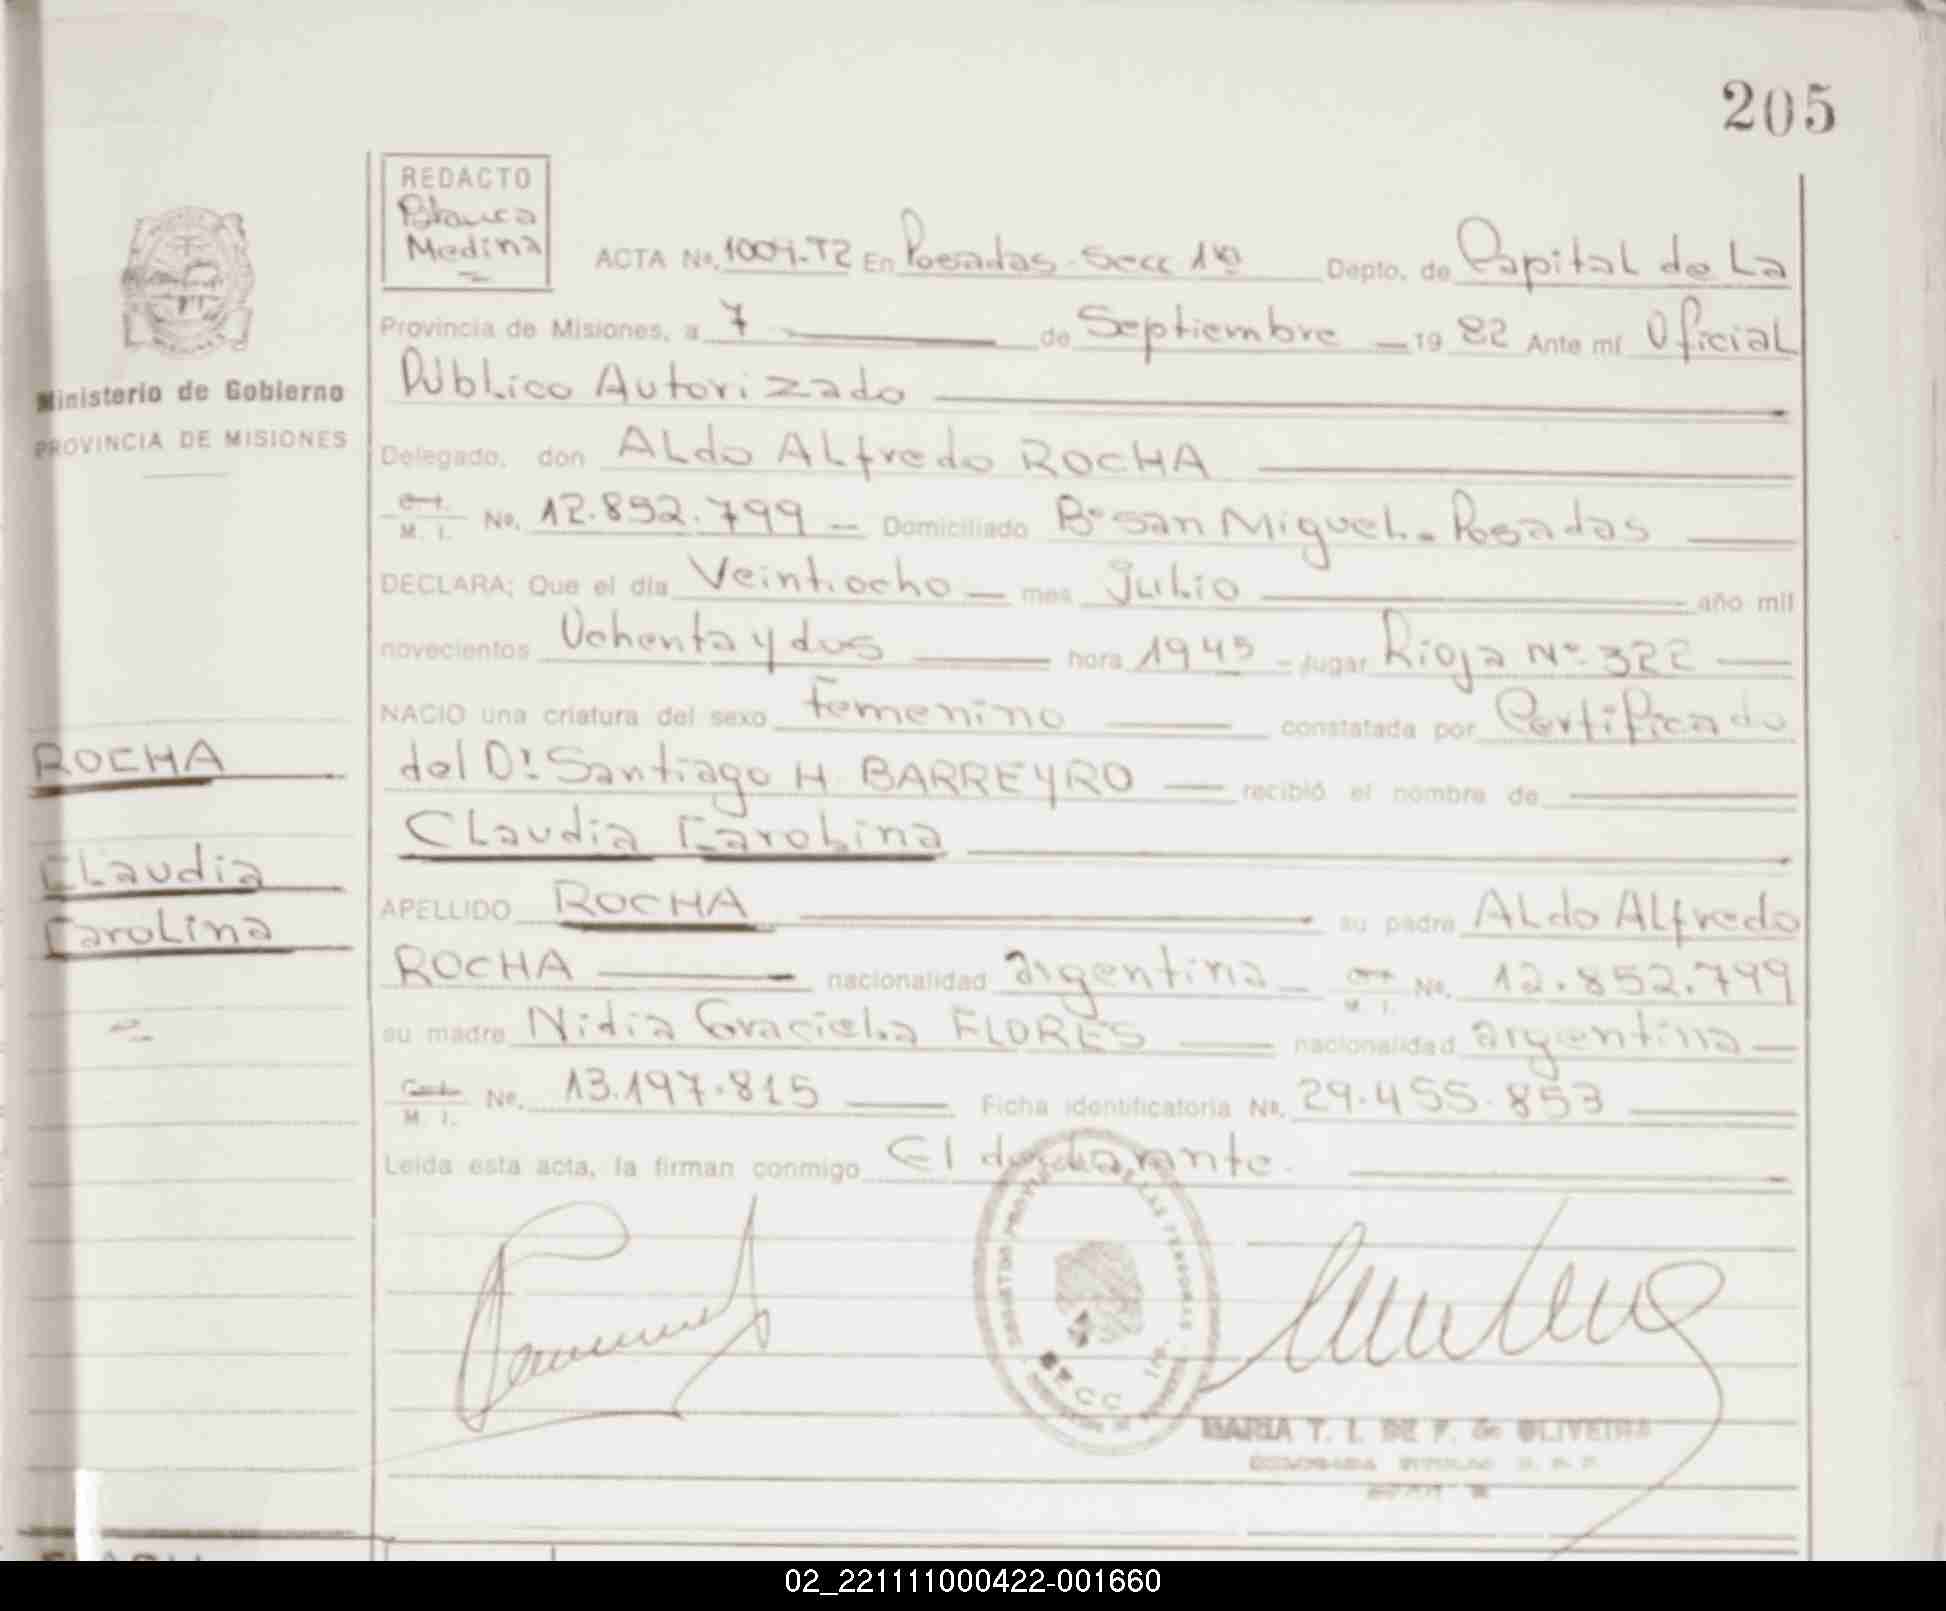 205
REDACTO
Blanca
Medina
ACTA No. 1004-T2 En Posadas-Secc 1ra Depto. de Capital de La
Provincia de Misiones, a 7 de Septiembre 19 82 Ante mí Oficial
Público Autorizado
Ministerio de Gobierno
PROVINCIA DE MISIONES
Delegado, don ALdo ALfredo ROCHA
M. I. No. 12.852.799 Domiciliado Bº San Miguel-Posadas
DECLARA; Que el día Veintiocho mes Julio año mil
novecientos Ochenta y dos hora 1945 lugar Rioja Nº 322
NACIO una criatura del sexo Femenino constatada por Certificado
del Dr Santiago H BARREYRO recibió el nombre de
CLaudia CaroLina
APELLIDO ROCHA su padre ALdo ALfredo
ROCHA nacionalidad argentina M. I. No. 12.852.799
su madre Nidia GracieLa FLORES nacionalidad argentina
M. I. No. 13.197.815 Ficha identificatoria No. 29.455.853
Leída esta acta, la firman conmigo El declarante.
ROCHA
CLaudia
CaroLina
MARIA T. I. DE F. de OLIVEIRA
02_221111000422-001660